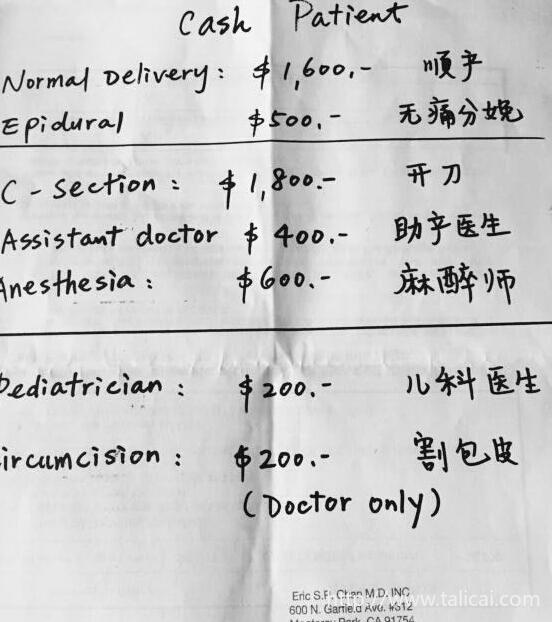 Cash Patient
Normal Delivery: $1,600.- 顺产
Epidural $500.- 无痛分娩
C-section: $1,800.- 开刀
Assistant doctor $400.- 助产医生
Anesthesia: $600.- 麻醉师
Pediatrician: $200.- 儿科医生
ircumcision: $200.- 割包皮
(Doctor only)
Eric S.F. Chan M.D. INC
600 N. Garfield Ave. #312
Monterey Park, CA 91754
http://www.talicai.com